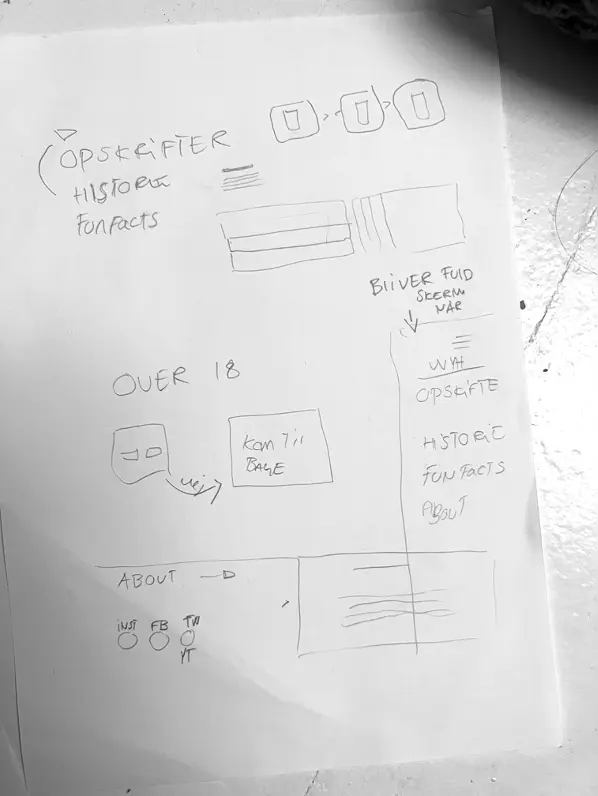 OPSKRIFTER
HISTORIE
FUNFACTS
BliVER FUlD
SKERM
NAR
OPSKiFTE
HiSTORiE
FUNFACTS
ABOUT
OVER 18
Kom Till
BAGE
Nej
ABOUT
iNST FB TW
YT